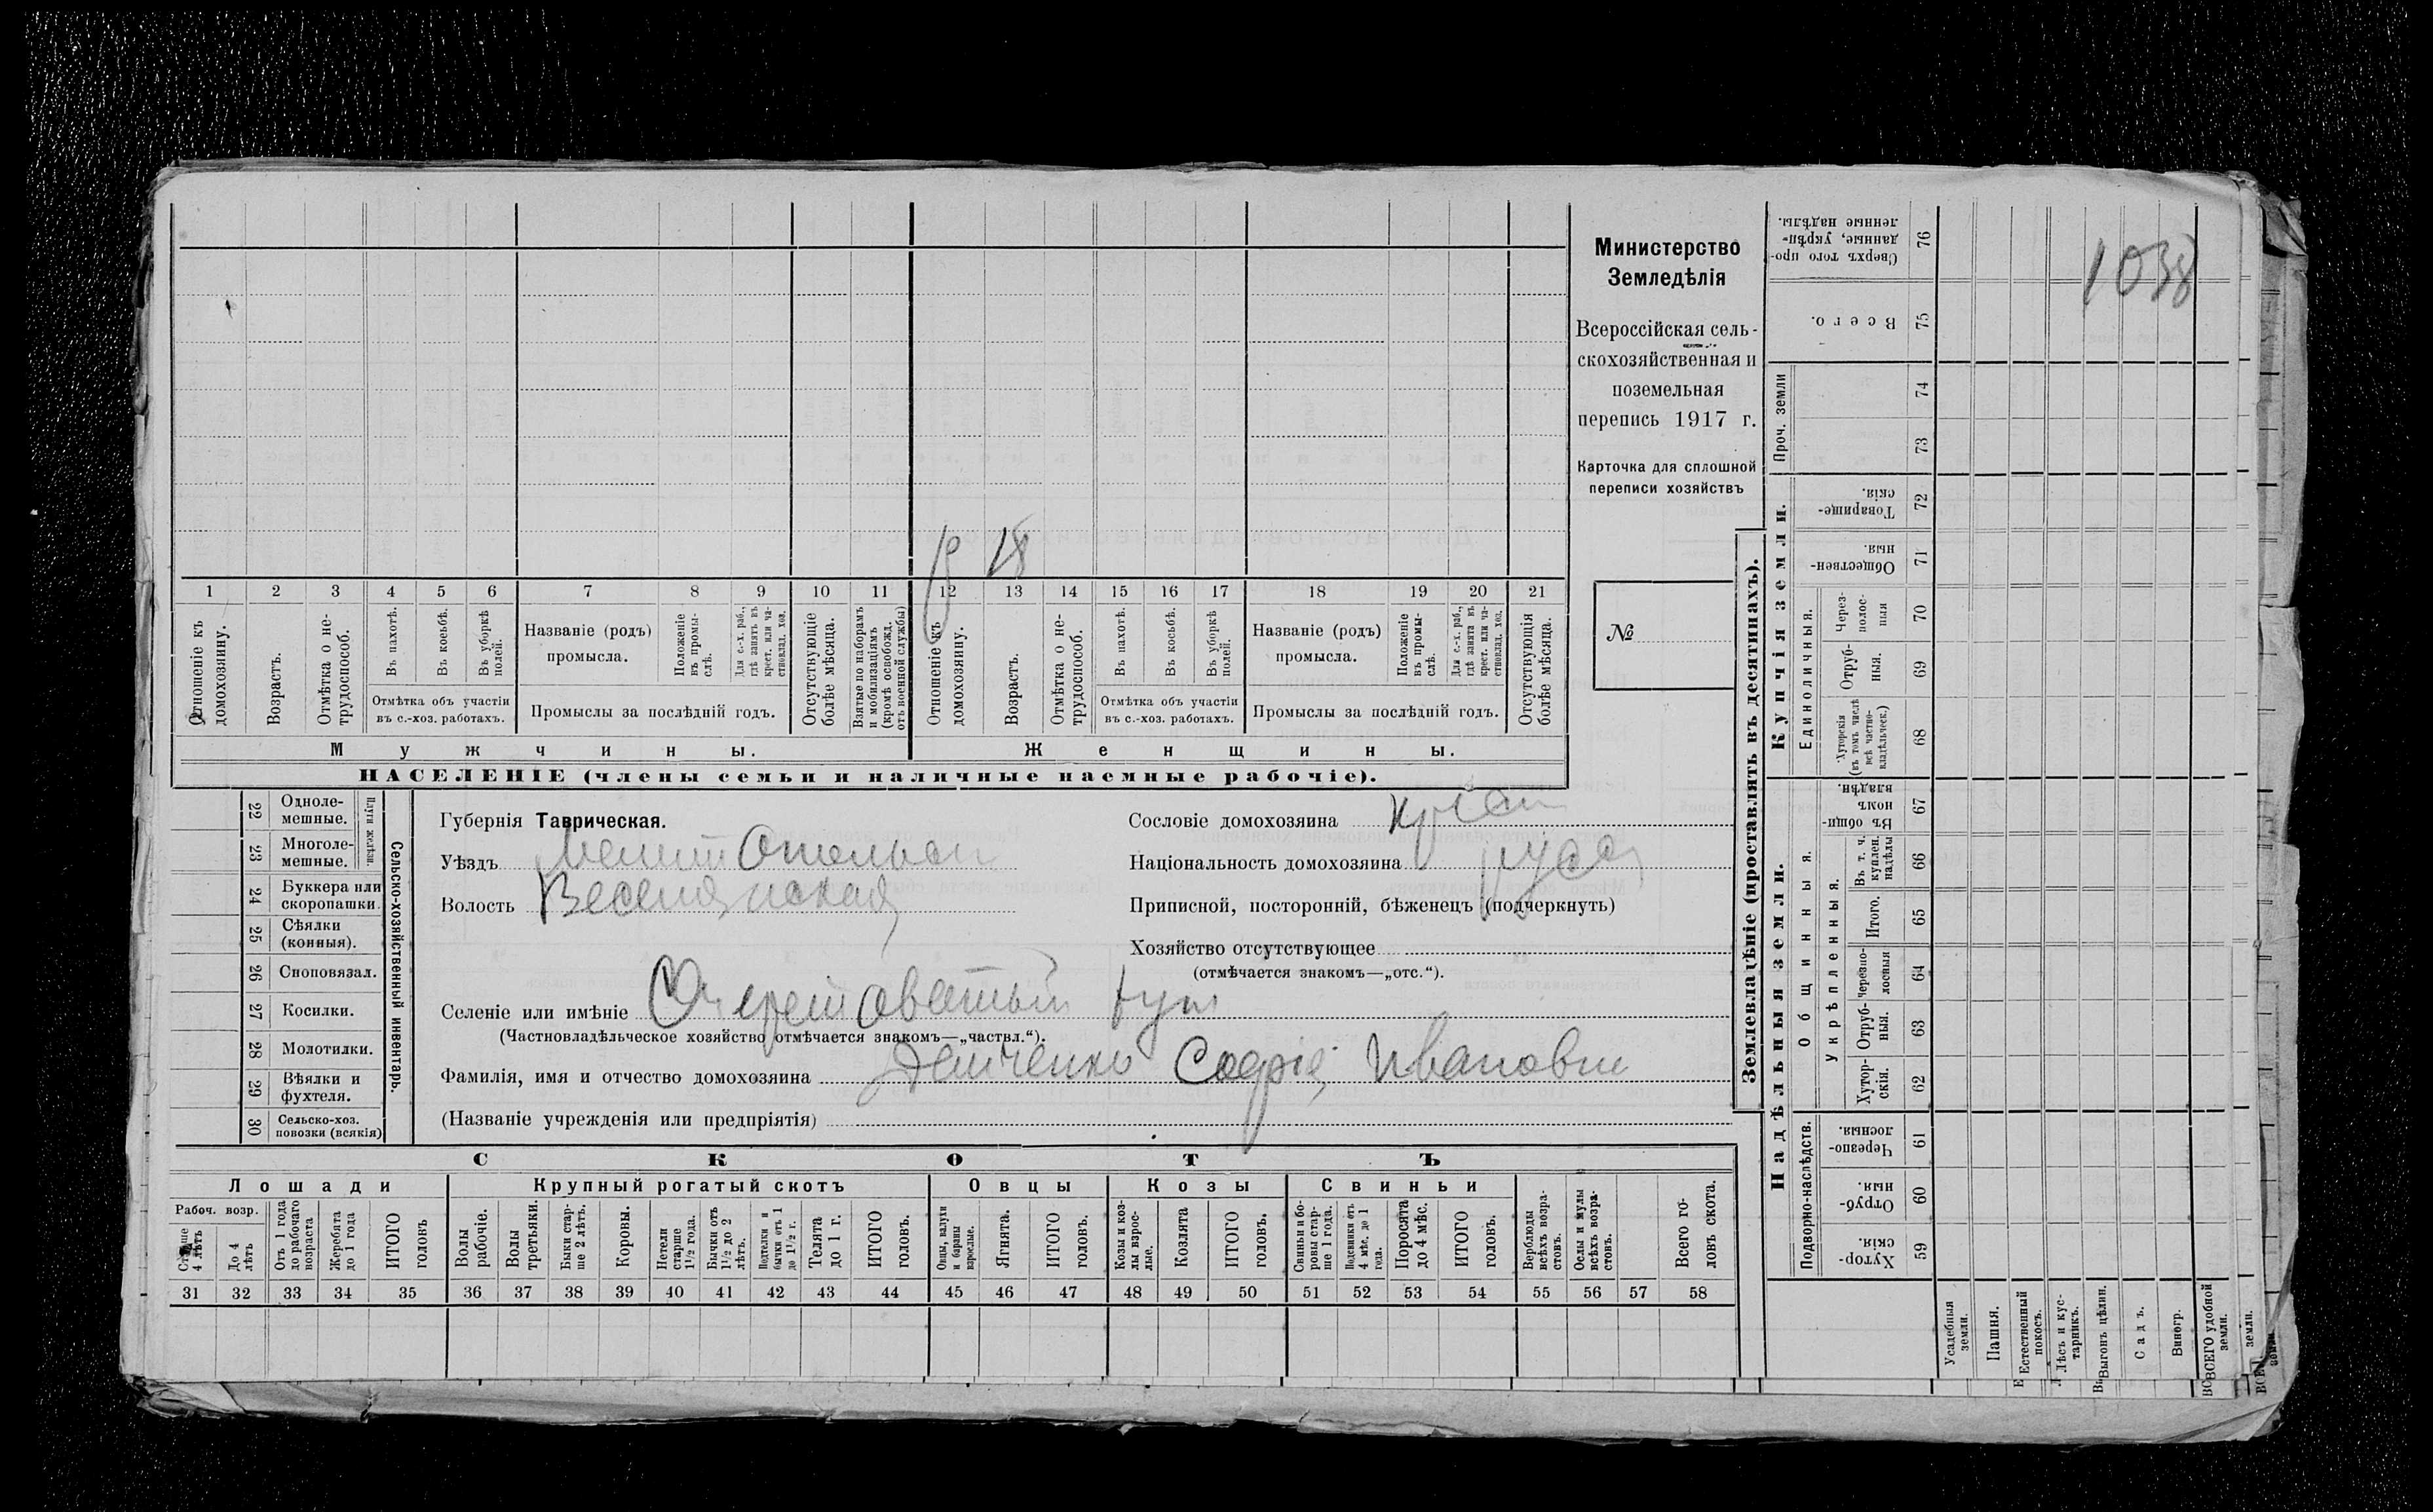 Министерство
Земледѣлія
Всероссійская сель-
скохозяйственная и
поземельная
перепись 1917 г.
Карточка для сплошной
переписи хозяйствъ
№
1038
18
1 2 3 4 5 6 7 8 9 10 11 12 13 14 15 16 17 18 19 20 21
Отношеніе къ домохозяину.
Возрастъ.
Отмѣтка о не-трудоспособ.
Въ пахотѣ.
Въ косьбѣ.
Въ уборкѣ полей.
Отмѣтка объ участіи
въ с.-хоз. работахъ.
Названіе (родъ)
промысла.
Положеніе въ промы-слѣ.
Для с.-х. раб., гдѣ занятъ въ крест. или ча-стновлад. хоз.
Промыслы за послѣдній годъ.
Отсутствующіе болѣе мѣсяца.
Взятые по наборамъ и мобилизаціямъ (кромѣ освобожд. отъ военной службы)
Отношеніе къ домохозяину.
Возрастъ.
Отмѣтка о не-трудоспособ.
Въ пахотѣ.
Въ косьбѣ.
Въ уборкѣ полей.
Отмѣтка объ участіи
въ с.-хоз. работахъ.
Названіе (родъ)
промысла.
Положеніе въ промы-слѣ.
Для с.-х. раб., гдѣ занята въ крест. или ча-стновлад. хоз.
Промыслы за послѣдній годъ.
Отсутствующія болѣе мѣсяца.
Мужчины.
Женщины.
НАСЕЛЕНІЕ (члены семьи и наличные наемные рабочіе).
22 Одноле-мешные.
23 Многоле-мешные.
Плуги желѣзн.
24 Буккера или скоропашки.
25 Сѣялки (конныя).
26 Сноповязал.
27 Косилки.
28 Молотилки.
29 Вѣялки и фухтеля.
30 Сельско-хоз. повозки (всякія)
Сельско-хозяйственный инвентарь.
Губернія Таврическая.
Уѣздъ Мелитопольск
Волость Веселянская
Сословіе домохозяина крест
Національность домохозяина русс
Приписной, посторонній, бѣженецъ (подчеркнуть)
Хозяйство отсутствующее
(отмѣчается знакомъ—„отс.“).
Селеніе или имѣніе Очеретоватый хут
(Частновладѣльческое хозяйство отмѣчается знакомъ—„частвл.“).
Фамилія, имя и отчество домохозяина Демченко Софія Ивановн
(Названіе учрежденія или предпріятія)
СКОТЪ
Лошади
Крупный рогатый скотъ
Овцы
Козы
Свиньи
Рабоч. возр.
Старше 4 лѣтъ
До 4 лѣтъ
Отъ 1 года до рабочаго возраста
Жеребята до 1 года
ИТОГО головъ
Волы рабочіе.
Волы третьяки.
Быки стар-ше 2 лѣтъ.
Коровы.
Нетели старше 1½ года.
Бычки отъ 1½ до 2 лѣтъ.
Подтелки и бычки отъ 1 до 1½ г.
Телята до 1 г.
ИТОГО головъ.
Овцы, валухи и бараны взрослые.
Ягнята.
ИТОГО головъ.
Козы и коз-лы взрос-лые.
Козлята
ИТОГО головъ.
Свиньи и бо-ровы стар-ше 1 года.
Подсвинки отъ 4 мѣс. до 1 года.
Поросята до 4 мѣс.
ИТОГО головъ.
Верблюды всѣхъ возра-стовъ.
Ослы и мулы всѣхъ возра-стовъ.
Всего го-ловъ скота.
31 32 33 34 35 36 37 38 39 40 41 42 43 44 45 46 47 48 49 50 51 52 53 54 55 56 57 58
Землевладѣніе (проставлять въ десятинахъ).
Купчія земли.
Надѣльныя земли.
Сверхъ того про-данные, укрѣп-ленные надѣлы. 76
Всего. 75
Проч. земли
74
73
Товарище-скія. 72
Обществен-ныя. 71
Единоличныя.
Через-полос-ныя 70
Отруб-ныя. 69
Хуторскія (въ томъ числѣ всѣ частно-владѣльческ.) 68
Общинныя.
Въ общи-номъ владѣн. 67
Укрѣпленныя.
Въ т. ч. куплен. надѣлы 66
Итого. 65
Черезпо-лосныя 64
Отруб-ныя. 63
Хутор-скія. 62
Подворно-наслѣдств.
Черезпо-лосныя. 61
Отруб-ныя. 60
Хутор-скія. 59
Усадебныя земли.
Пашня.
Естественный покосъ.
Лѣсъ и кус-тарникъ.
Выгонъ цѣлин.
Садъ.
Виногр.
ВСЕГО удобной земли.